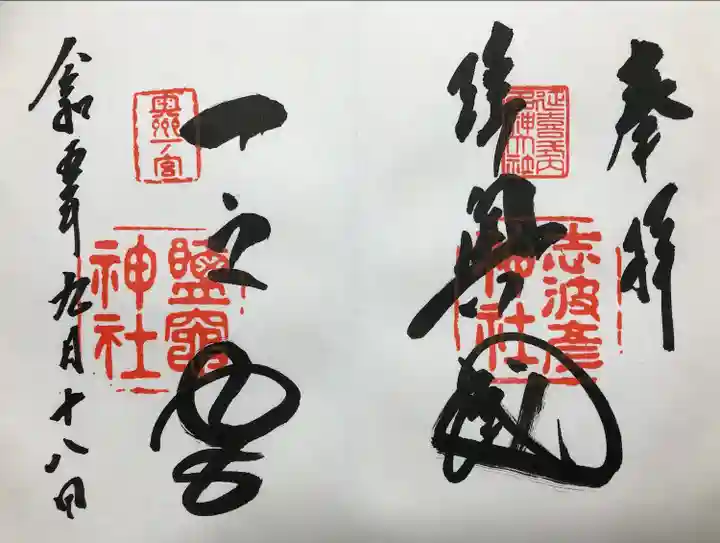 奉拝
陸奥國
延喜式内
名神大社
志波彦
神社
一之宮
奥州一宮
鹽竈
神社
令和五年九月十八日